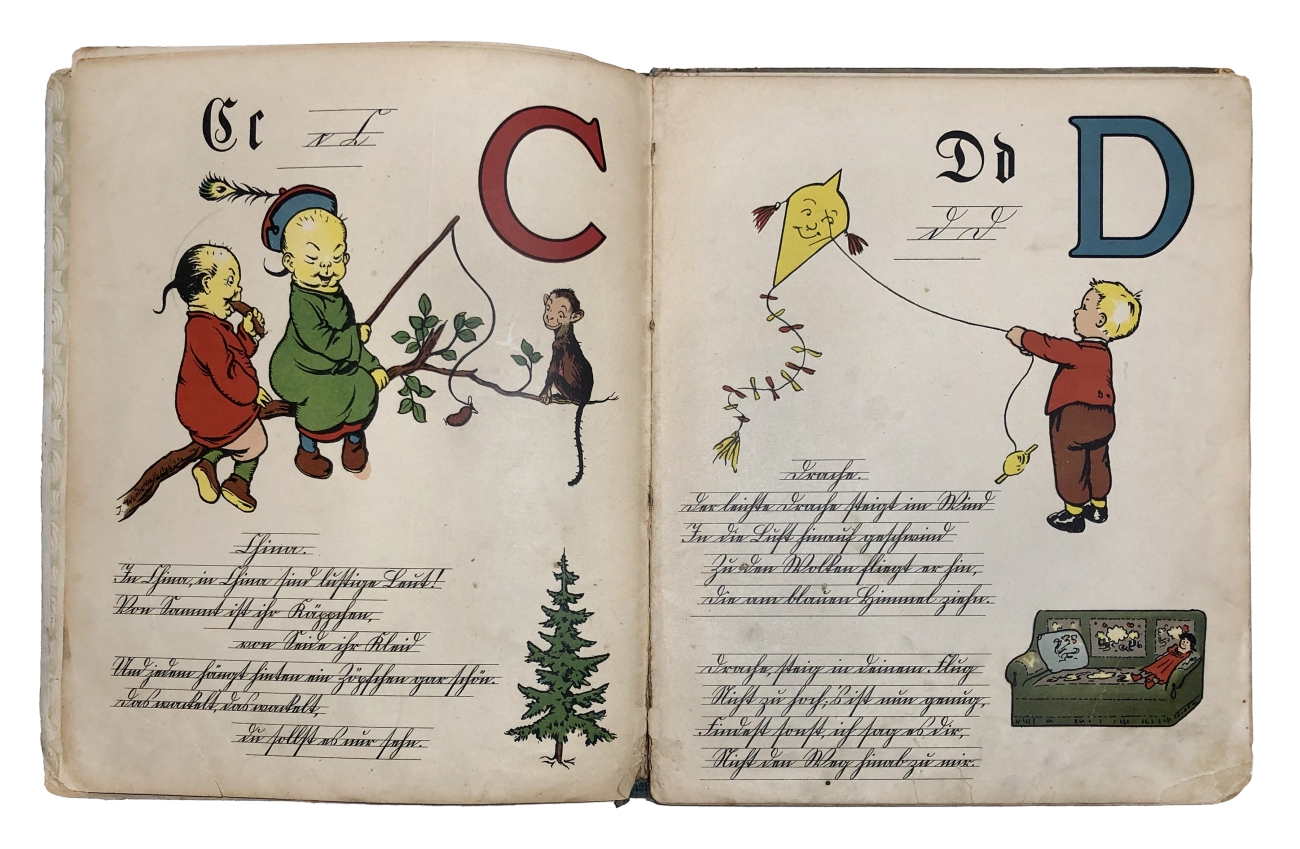 C c
c C
C
China.
In China, in China sind lustige Leut'!
Von Sammt ist ihr Käppchen,
von Seide ihr Kleid
Und jedem hängt hinten ein Zöpfchen gar schön.
Das wackelt, das wackelt,
du sollst es nur sehn.
D d
D
d D
Drache.
Der leichte Drache steigt im Wind
In die Luft hinauf geschwind
Zu den Wolken fliegt er hin,
Die am blauen Himmel ziehn.
Drache, steig in deinem Flug
Nicht zu hoch. 's ist nun genug,
Findest sonst, ich sag es dir,
Nicht den Weg hinab zu mir.